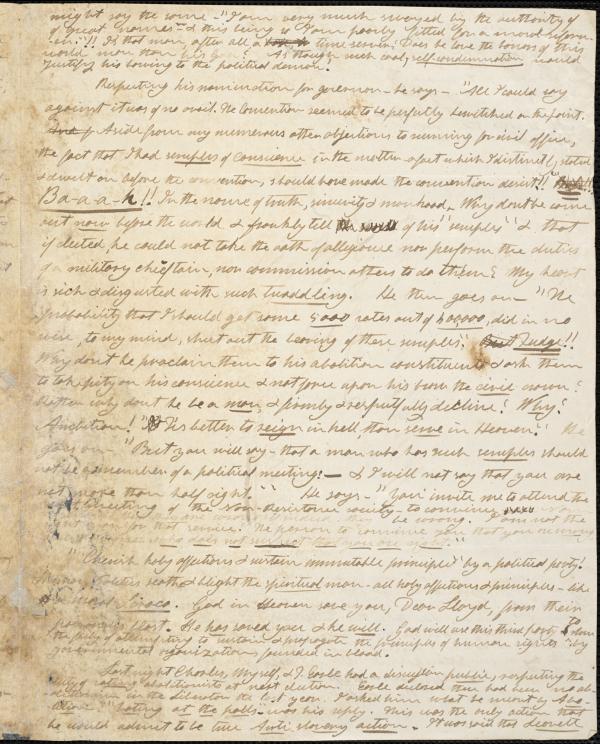 might say the same - "I am very much swayed by the authority of
of great names - & this being so I am poorly fitted for a moral reform-
er." !! Is that man, after all a time server? Does he love the honors of this
world more than As though such cool self condemnation would
justify his bowing to the political demon.
Respecting his nomination for governor - he says - "All I could say
against it was of no avail. The Convention seemed to be perfectly bewitched on the point.
Aside from my numerous other objections to running for civil office,
the fact that I had scruples of conscience in the matter - a fact which I distinctly stated
& dwelt on before the convention, should have made the convention desist!!
Ba-a-a-h!! In the name of truth, sincerity & manhood, Why dont he come
out now before the world & frankly tell of his "scruples" & that
if elected, he could not take the oath of allegiance nor perform the duties
of a military chieftain, nor commission others to do them? My heart
is sick & disgusted with such twaddling. He then goes on - "The
probability that I should get some 5000 votes out of 400,000, did in no
wise, to my mind, shut out the bearing of these scruples. Fudge!!
Why dont he proclaim them to his abolition constituents & ask them
to take pity on his conscience & not force upon his brow the civil crown?
Better why dont he be a man, & firmly & respectfully decline? Why?
Ambition! "Tis better to reign in hell, than serve in Heaven." He
goes on - "But you will say - that a man who has such scruples should
not be a member of a political meeting! - & I will not say that you are
not more than half right." He says - "You invite me to attend the
Meeting of the Non-resistance society - to convince
be wrong. I am not the
for that service. The person to convince you that you are wrong
who does not suspect that you are right."
"Cherish holy affections & sustain immutable principles" by a political party!
politics scath & blight the spiritual man - all holy affections & principles - like
Siroco. God in Heaven save you, Dear Lloyd, from their
blast. He has saved you & he will. God will use this third party to shew
the folly of attempting to sustain & propagate the principles of human rights by
governmental organizations founded in blood.
Last night Charles, Myself, & T. Earle had a discussion public, respecting the
duty of voting abolitionists at next election. Earle declared there had been no ab-
in the last year. I asked him what he meant by "Ac-
tion" "voting at the polls" was his reply. This was the only action that
he would admit to be true Anti slavery action. It was said that